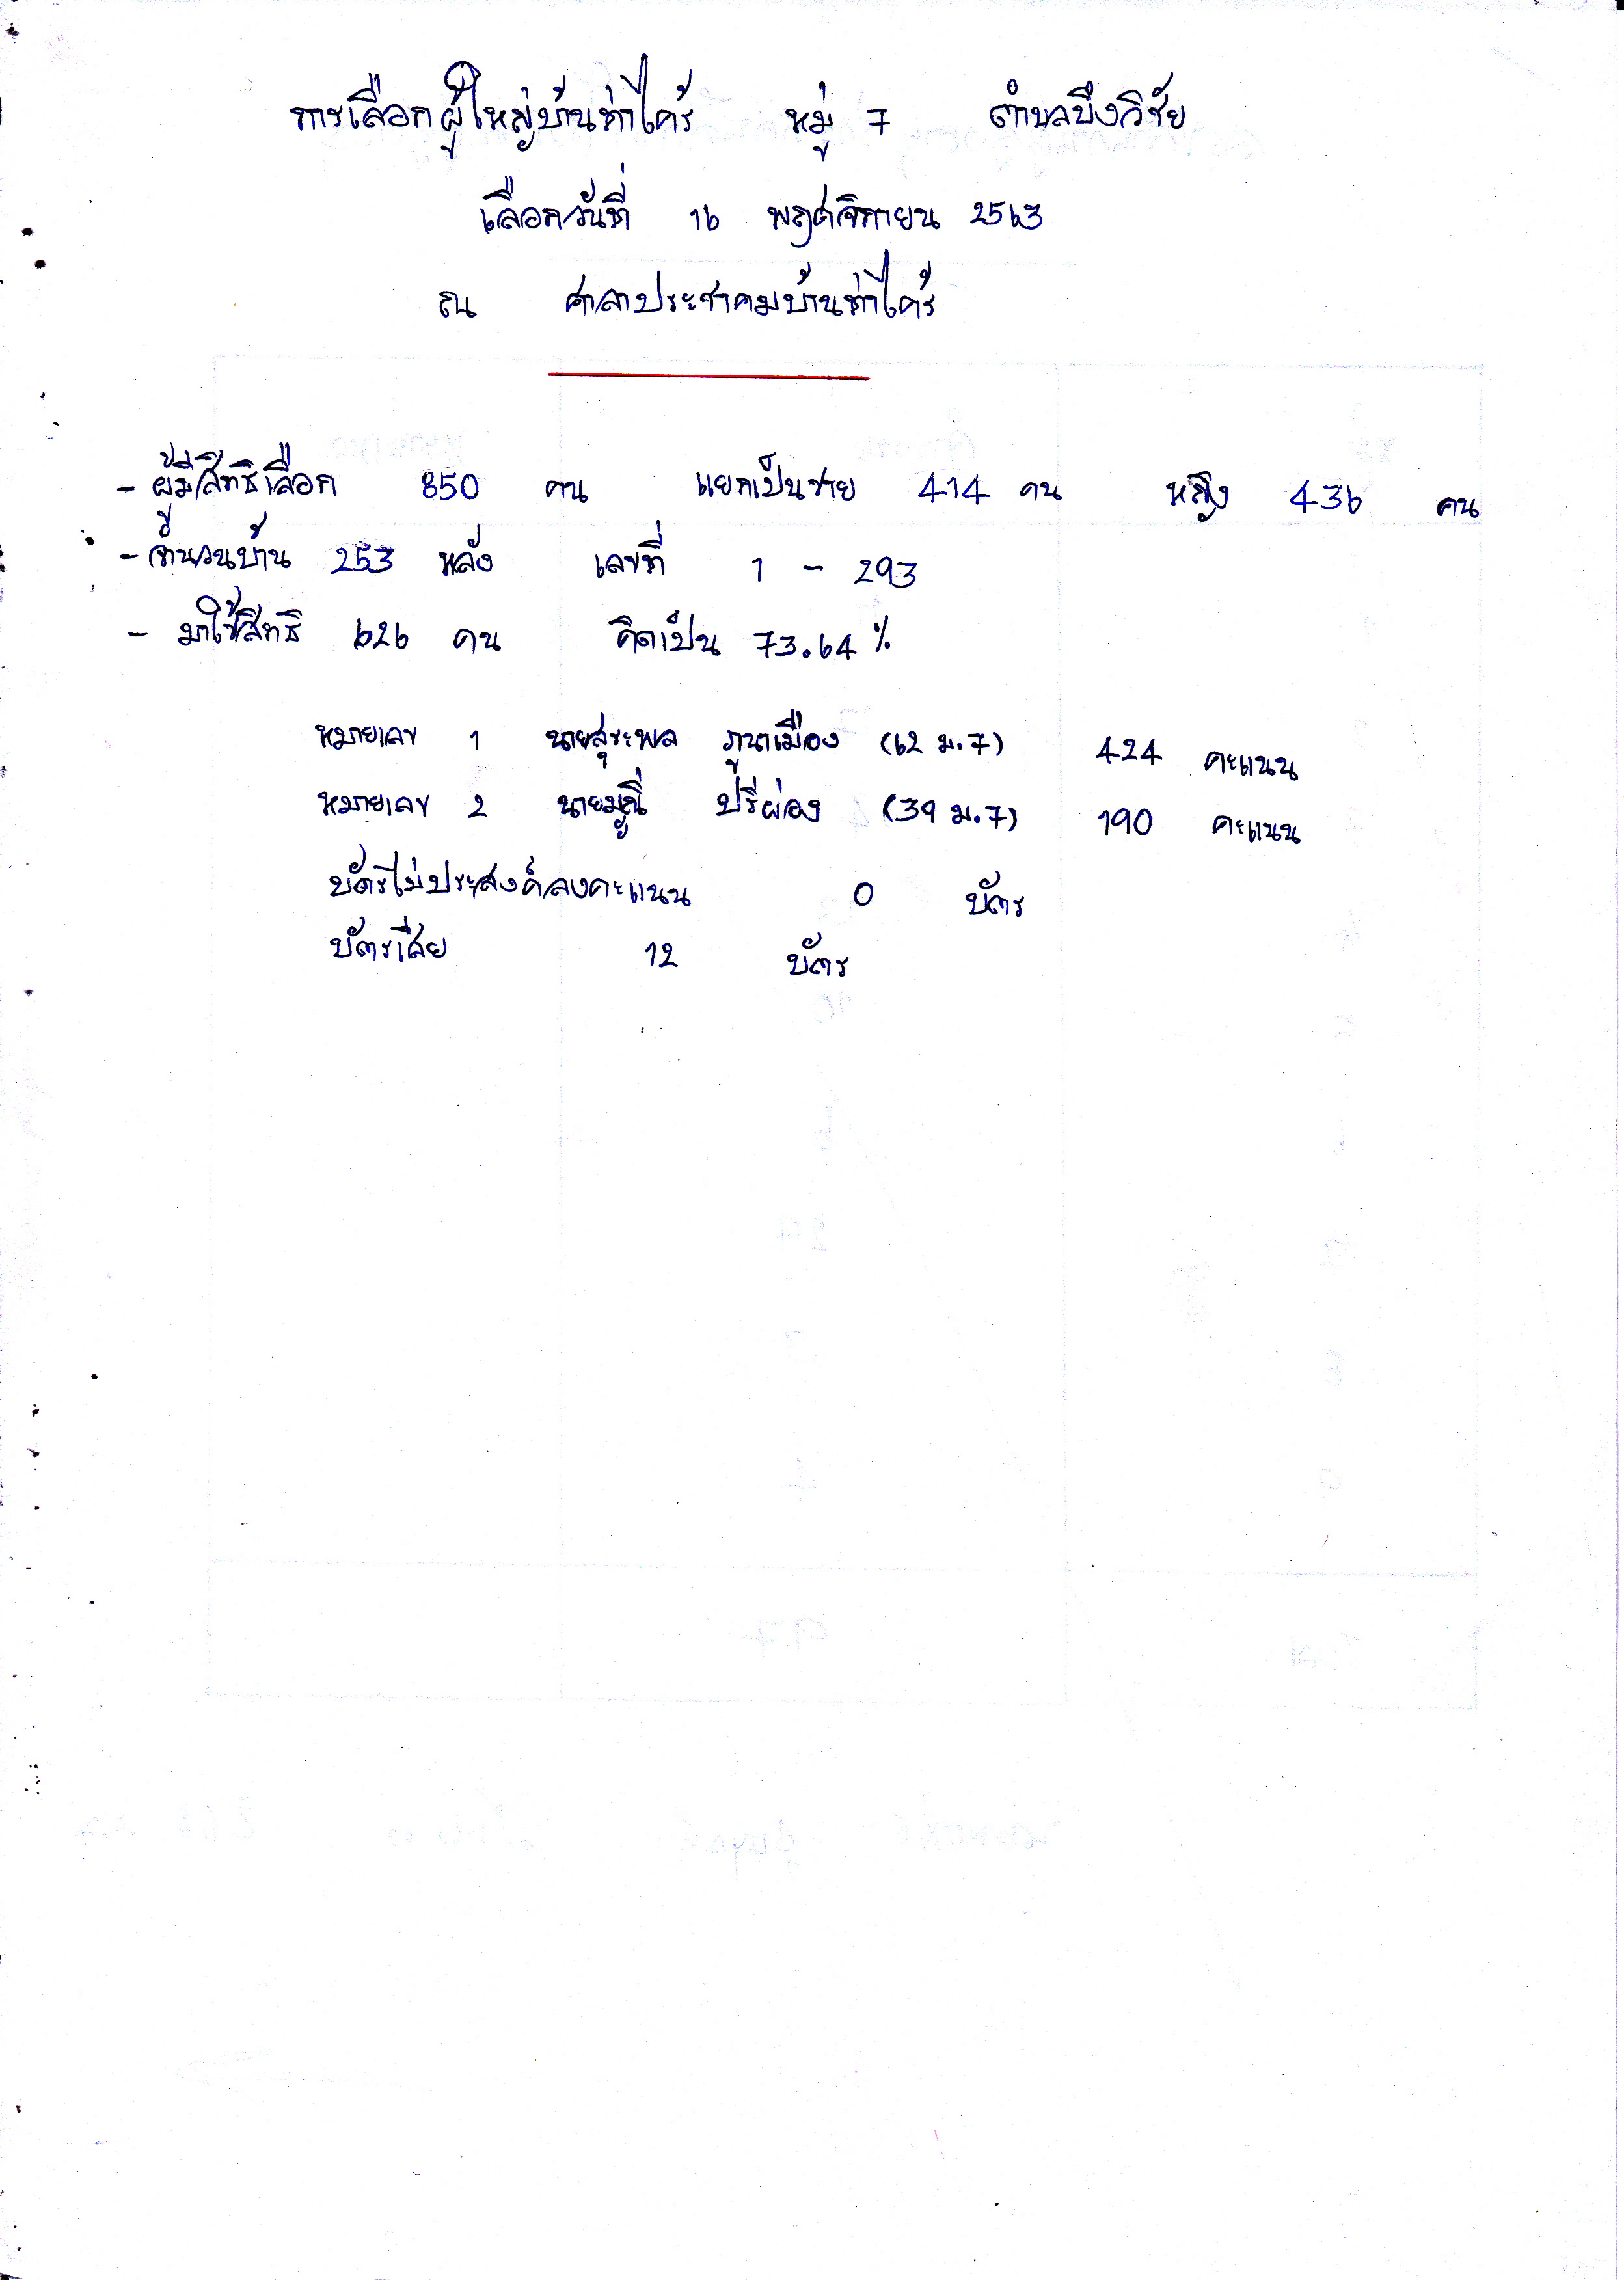 การเลือกผู้ใหญ่บ้านท่าไคร้ หมู่ 7 ตำบลบึงวิชัย
เลือกวันที่ 16 พฤศจิกายน 2563
ณ ศาลาประชาคมบ้านท่าไคร้
- ผู้มีสิทธิเลือก 850 คน แยกเป็นชาย 414 คน หญิง 436 คน
- จำนวนบ้าน 253 หลัง เลขที่ 1 - 293
- มาใช้สิทธิ 626 คน คิดเป็น 73.64 %
หมายเลข 1 นายสุระพล ภูนาเมือง (62 ม.7) 424 คะแนน
หมายเลข 2 ปรีผ่อง (39 ม.7) 190 คะแนน
บัตรไม่ประสงค์ลงคะแนน 0 บัตร
บัตรเสีย 12 บัตร